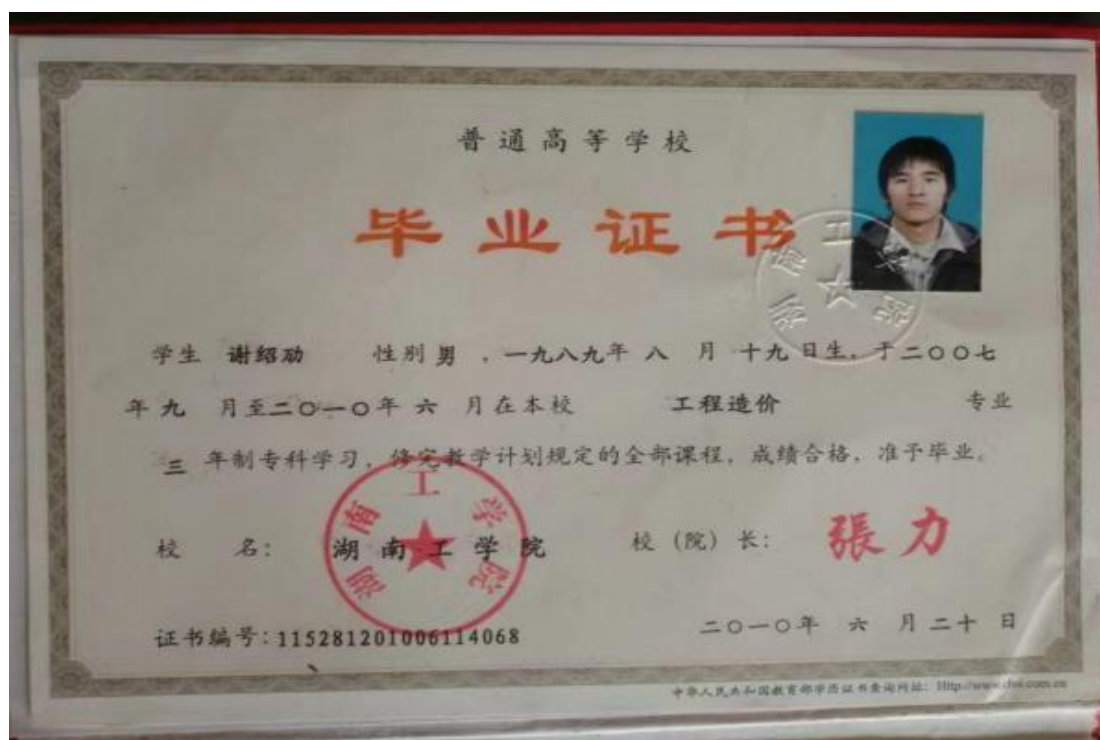 普通高等学校
毕业证书
学生 谢绍劢 性别 男 ，一九八九年 八 月 十九日生，于二〇〇七
年 九 月至二〇一〇年 六 月在本校 工程造价 专业
三 年制专科学习，修完教学计划规定的全部课程，成绩合格，准予毕业。
校 名： 湖南工学院 校（院）长： 張力
湖南工学院
证书编号：115281201006114068 二〇一〇年 六 月 二十 日
中华人民共和国教育部学历证书查询网址：